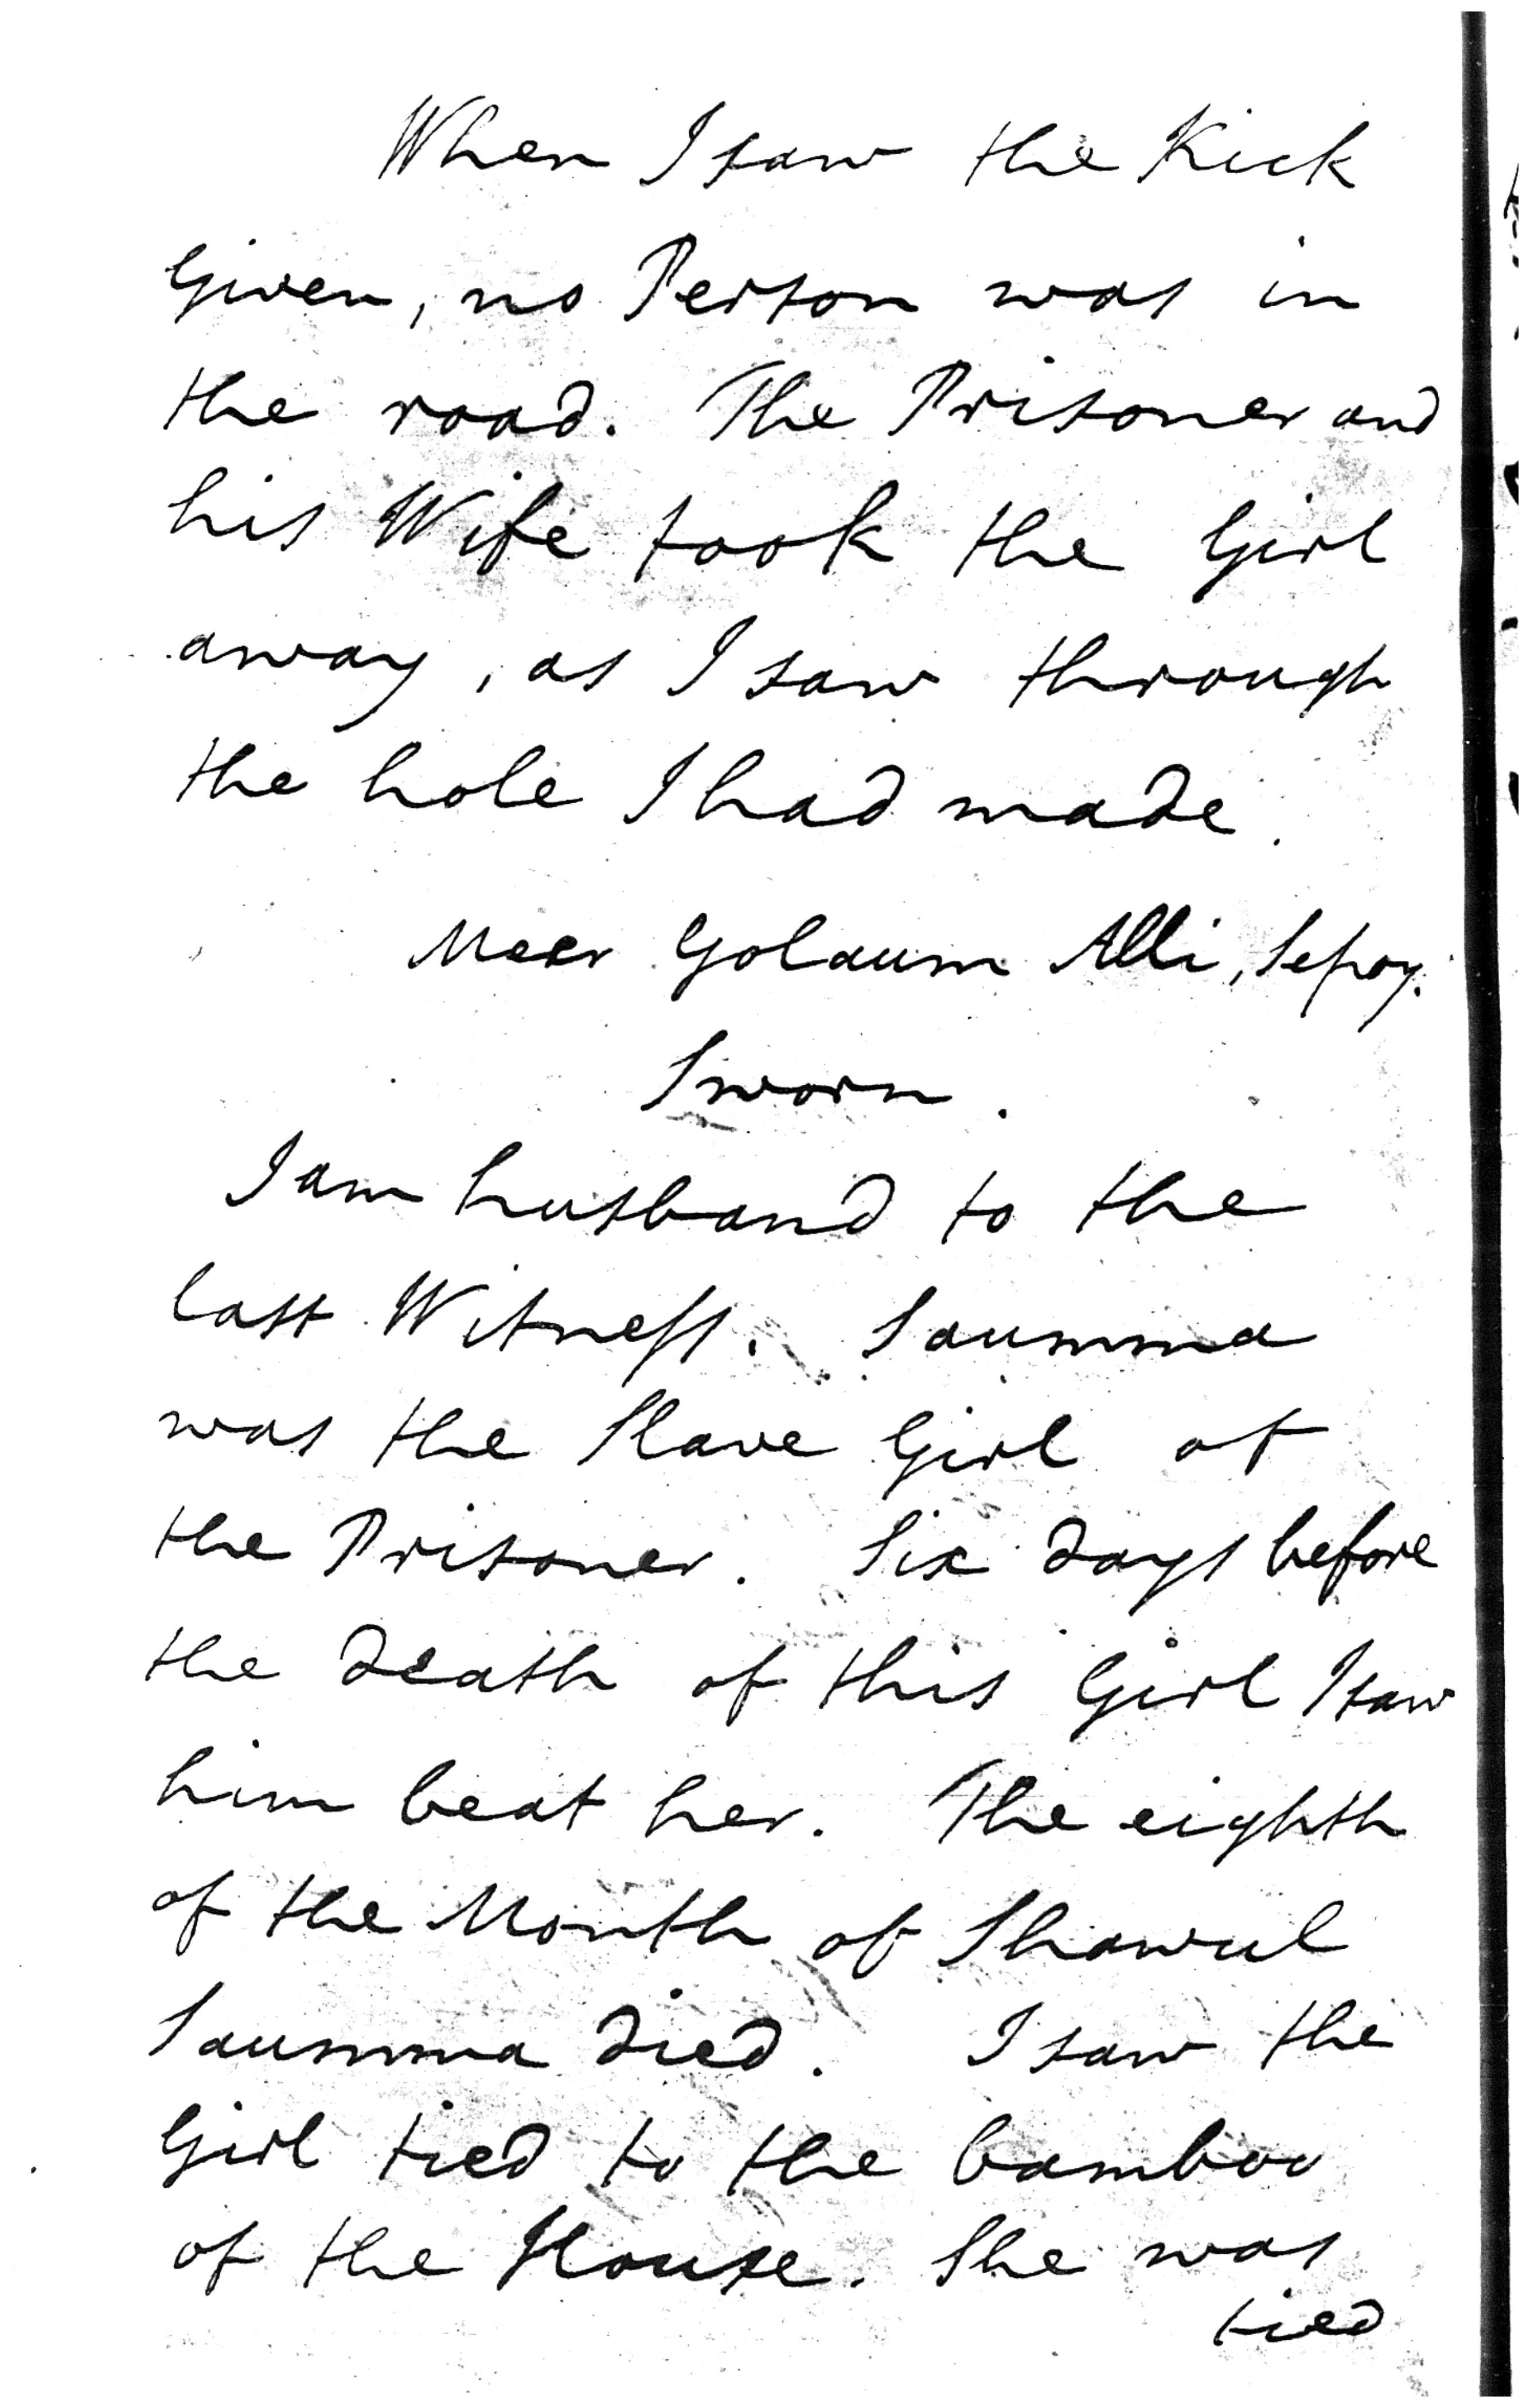 When I saw the Kick
Given, no Person was in
the road. The Prisoner and
his Wife took the Girl
away, as I saw through
the hole I had made.
Meer Golaum Alli, Sepoy.
Sworn.
I am husband to the
last Witness. Saumma
was the Slave Girl of
the Prisoner. Six days before
the death of this Girl I saw
him beat her. The eighth
of the Month of Shawul
Saumma died. I saw the
Girl tied to the bamboo
of the House. She was
tied